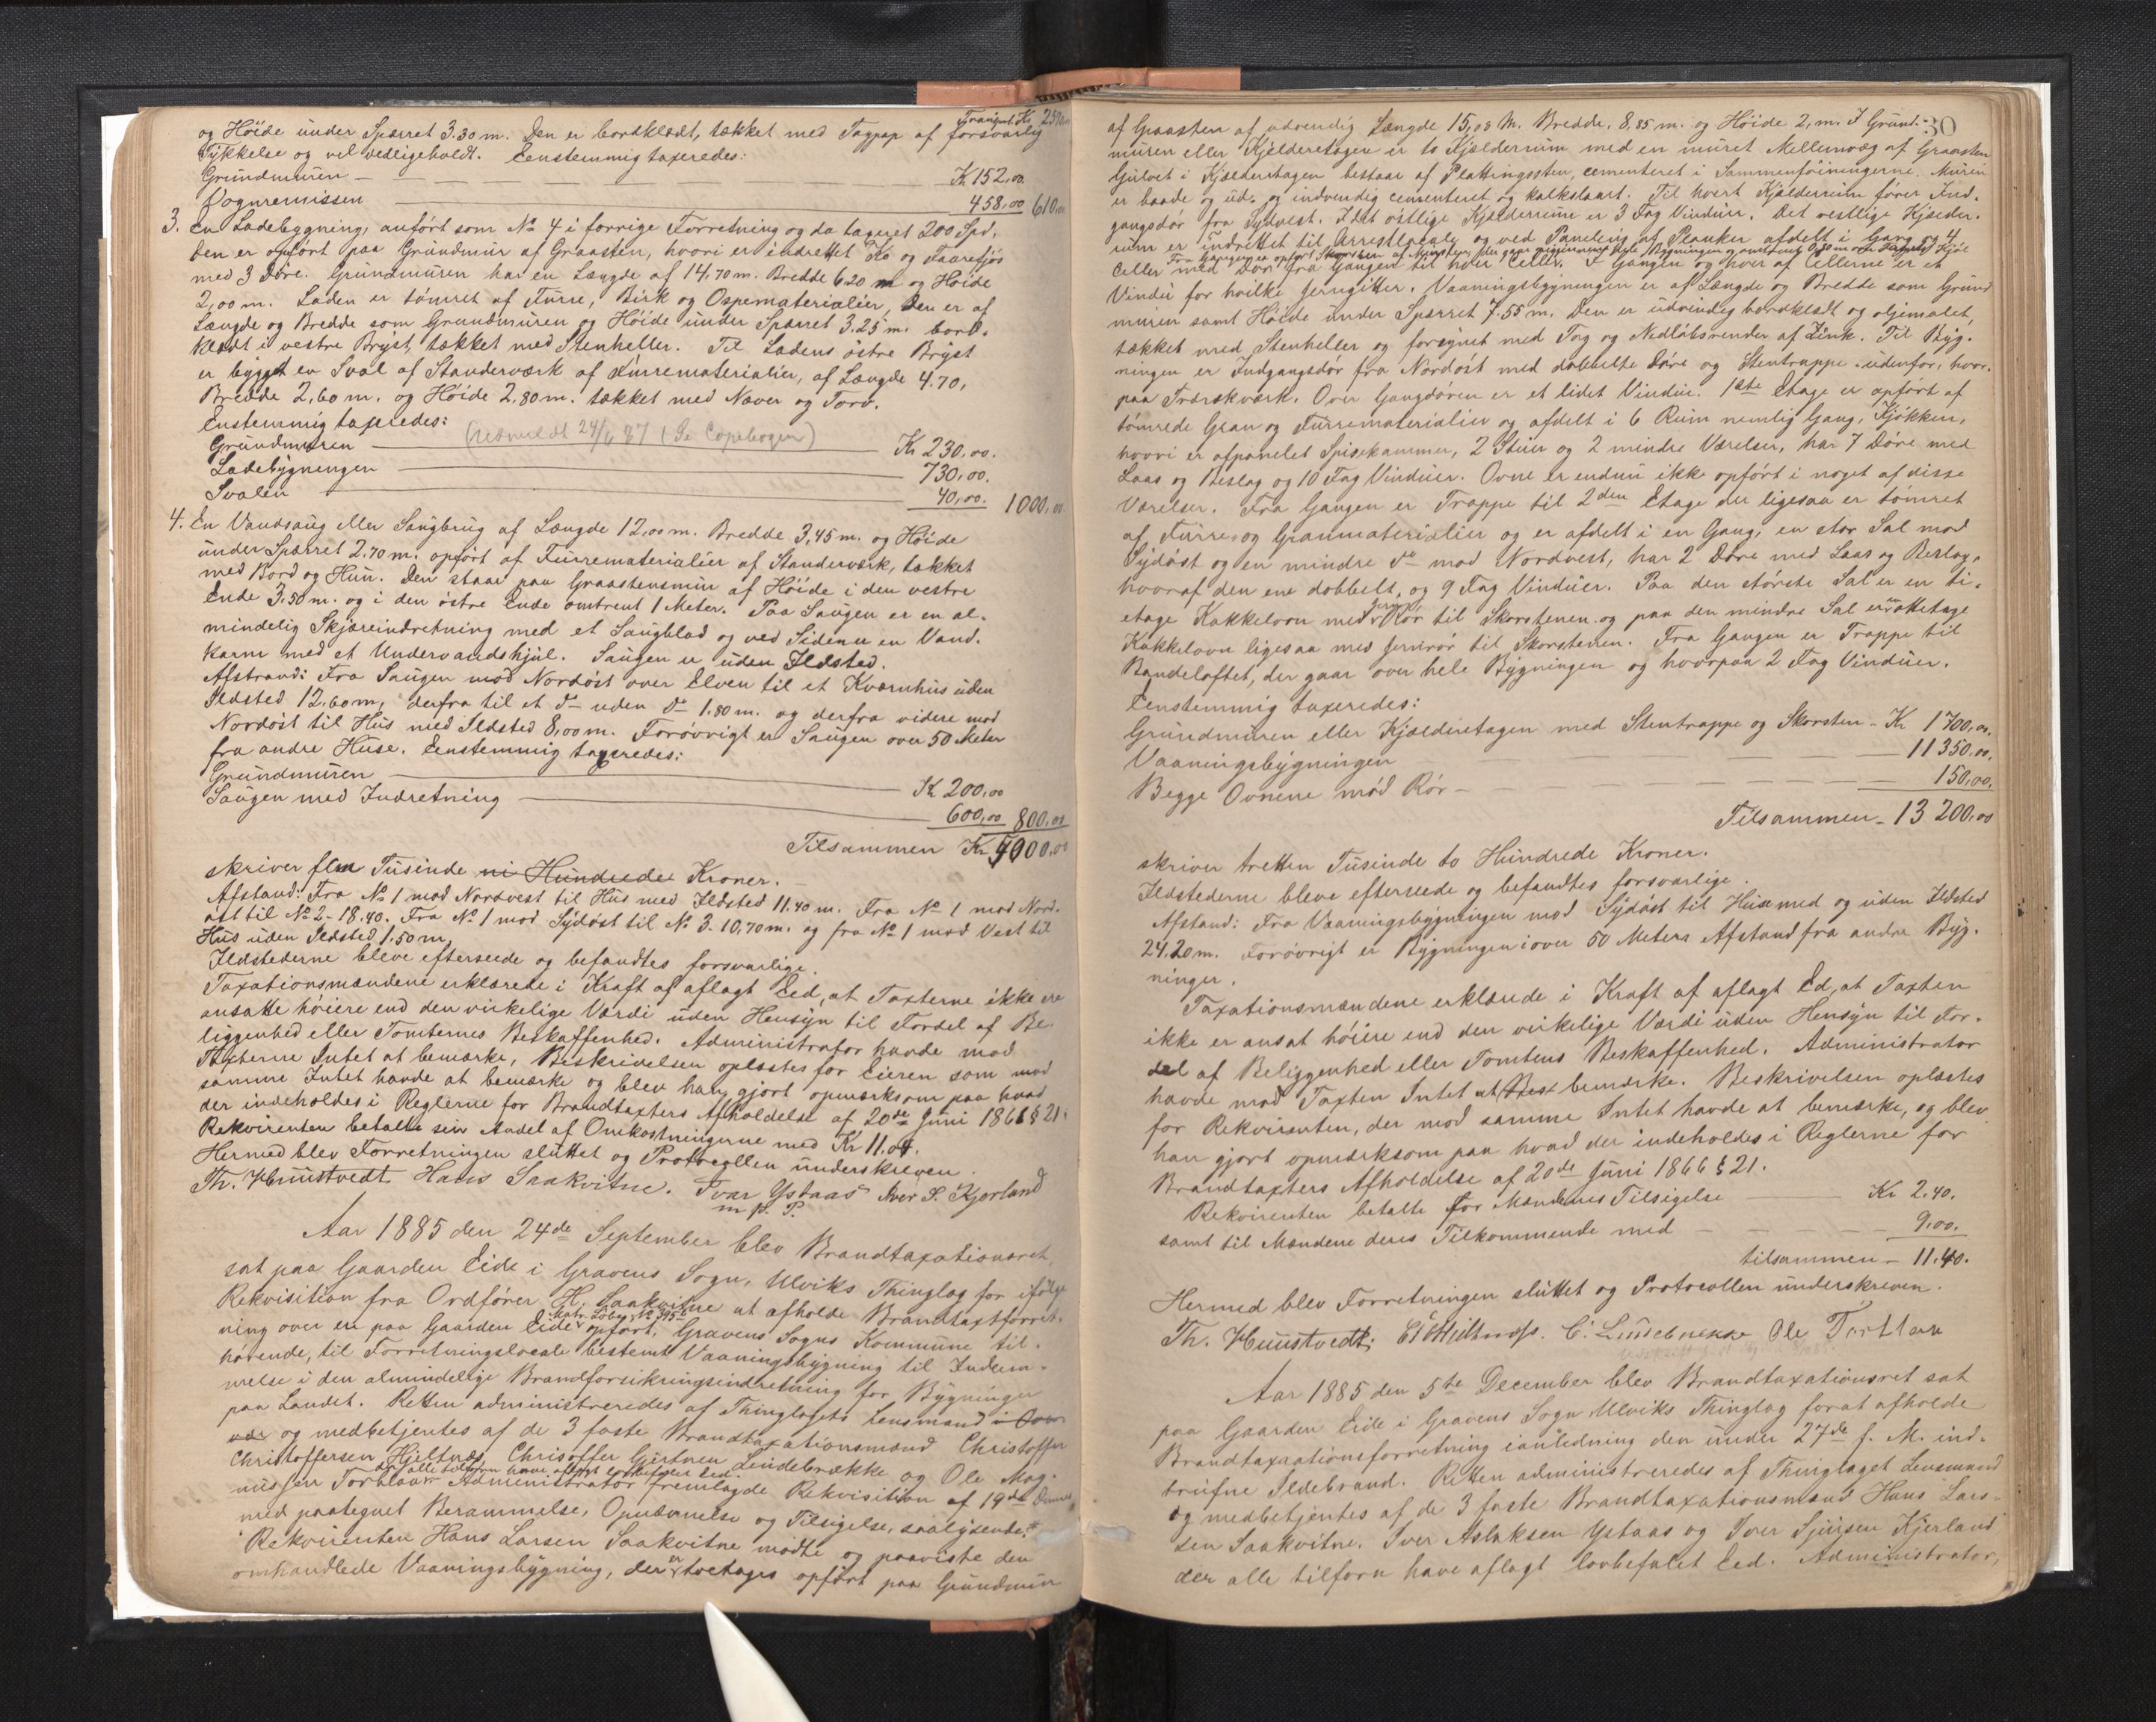 Transport Kr 2590
og Høide under Spærret 3.30 m. Den er bordklædt, tækket med Tagpap af forsvarlig
Tykkelse og vel vedligeholdt. Eenstemmig taxeredes:
Grundmuren — Kr 152,00.
Vognremissen — 458,00 610,00
3. En Ladebygning, anført som No 4 i forrige Forretning og da taxeret 200 Spd,
den er opført paa Grundmur af Graasten, hvori er indrettet Ko og Faarefjøs
med 3 Døre. Grundmuren har en Længde af 14,70 m. Bredde 6.20 m og Høide
2,00 m. Laden er tømret af Furre, Birk og Ospematerialier, den er af
Længde og Bredde som Grundmuren og Høide under Spærret 3.25 m. bord-
klædt i vestre Bryst, tækket med Stenheller. Til Ladens østre Bryst
er bygget en Sval af Standerværk af Furrematerialier, af Længde 4.70,
Bredde 2,60 m. og Høide 2,80 m. tækket med Næver og Torv.
Enstemmig taxeredes:
Grundmuren — Kr 230,00.
Ladebygningen — 730,00.
Svalen — 40,00. 1000,00
4. En Vandsaug eller Saugbrug af Længde 12,00 m. Bredde 3,45 m. og Høide
under Spærret 2.70 m. opført af Furrematerialier af Standerværk, takket
med Bord og Hun. Den staar paa Graastensmur af Høide i den vestre
Ende 3.50 m. og i den østre Ende omtrent 1 Meter. Paa Saugen er en al-
mindelig Skjæreindretning med et Saugblad og ved Siden en Vand-
karm med et Undervandshjul. Saugen er uden Ildsted.
Afstand: Fra Saugen mod Nordøst over Elven til et Kværnhus uden
Ildsted 12.60 m, derfra til et do uden do 1.80 m. og derfra videre mod
Nordøst til Hus med Ildsted 8,00 m. Forøvrigt er Saugen over 50 Meter
fra andre Huse. Eenstemmig taxeredes:
Grundmuren — Kr 200,00
Saugen med Indretning — 600,00 800,00
Tilsammen Kr 5000,00
skriver fem Tusinde ni Hundrede Kroner.
Afstand: Fra No 1 mod Nordvest til Hus med Ildsted 11.40 m. Fra No 1 mod Nord-
øst til No 2 - 18.40. Fra No 1 mod Sydøst til No 3 - 10,70 m. og fra No 1 mod Vest til
Hus uden Ildsted 1.50 m.
Ildstederne bleve efterseede og befandtes forsvarlige.
Taxationsmændene erklærede i Kraft af aflagt Eed, at Taxterne ikke ere
ansatte høiere end den virkelige Værdi uden Hensyn til Fordel af Be-
liggenhed eller Tomternes Beskaffenhed. Administrator havde mod
Taxterne Intet at bemærke, Beskrivelsen oplæstes for Eieren som mod
samme Intet havde at bemærke og blev han gjort opmærksom paa hvad
der indeholdes i Reglerne for Brandtaxters Afholdelse af 20de Juni 1866 § 21.
Rekvirenten betalte sin Andel af Omkostningerne med Kr 11.04.
Hermed blev Forretningen sluttet og Protocollen underskreven.
Th. Huustvedt. Hans Saakvitne. Ivar Ystaas Iver S. Kjerland
m. p. P.
Aar 1885 den 24de September blev Brandtaxationsret
sat paa Gaarden Eide i Gravens Sogn, Ulviks Thinglag for ifølge
Rekvisition fra Ordfører H. Saakvitne at afholde Brandtaxtforret-
ning over en paa Gaarden Eide Matr. Løbe No 395 opført, Gravens Sogns Kommune til-
hørende, til Forretningslocale bestemt Vaaningsbygning til Indem-
melse i den almindelige Brandforsikringsindretning for Bygninger
paa Landet. Retten administreredes af Thinglagets Lensmand
og medbetjentes af de 3 faste Brandtaxationsmænd Christoffer
Christoffersen Hjeltnæs, Chrisoffer Lindebrække og Ole Mag-
nussen Torblaa der alle tilforn have aflagt lovbefalet Eed. Administrator fremlagde Rekvisition af 19de Dennes
med paategnet Berammelse, Opnævnelse og Tilsigelse, saalydende:
Rekvirenten Hans Larsen Saakvitne mødte og paaviste den
omhandlede Vaaningsbygning, der er toetages opført paa Grundmur
30
af Graasten af udvendig Længde 15,08 M. Bredde, 8,85 m. og Høide 2, m. I Grund-
muren eller Kjælderetagen er to Kjælderrum med en muret Mellemvæg af Graasten
Gulvet i Kjælderetagen bestaar af Plattingssten, cementeret i Sammenføiningerne. Muren
er baade og ud- og indvendig cementeret og kalkslaaet. Til hvert Kjælderrum fører Ind-
gangsdør fra Sydvest. I det østlige Kjælderrum er 3 Fag Vinduer. Det vestlige Kjælder-
rum er indrettet til Arrestlocale og ved Paneling af Planker afdelt i Gang og 4
Celler med Dør fra Gangen til hver Celle. I Gangen og hver af Cellerne er et
Vindu for hvilke Jerngitter. Vaaningsbygningen er af Længde og Bredde som Grund
muren samt Høide under Spærret 7.55 m. Den er udvendig bordklædt og oljemalet,
tækket med Stenheller og forsynet med Tag og Nedløbsrender af Zink. Til Byg-
ningen er Indgangsdør fra Nordøst med dobbelte Døre og Stentrappe udenfor, hvor-
paa Træskværk. Over Gangdøren er et lidet Vindue. 1ste Etage er opført af
tømrede Gran og Furrematerialier og afdelt i 6 Rum nemlig Gang, Kjøkken,
hvori er afpanelet Spisekammer, 2 Stuer og 2 mindre Værelser, har 7 Døre med
Laas og Beslag og 10 Fag Vinduer. Ovne er endnu ikke opført i noget af disse
Værelser. Fra Gangen er Trappe til 2den Etage der ligesaa er tømret
af Furre- og Granmaterialier og er afdelt i en Gang, en stor Sal mod
Sydøst og en mindre do mod Nordvest, har 2 Døre med Laas og Beslag,
hvoraf den ene dobbelt, og 9 Fag Vinduer. Paa den største Sal er en ti-
etage Kakkelovn med Jern Rør til Skorstenen og paa den mindre Sal er en ottetage
Kakkelovn ligesaa med Jernrør til Skorstenen. Fra Gangen er Trappe til
Bandeloftet, der gaar over hele Bygningen og hvorpaa 2 Fag Vinduer.
Eenstemmig taxeredes:
Grundmuren eller Kjælderetagen med Stentrappe og Skorsten - Kr 1700,00.
Vaaningsbygningen — 11350,00.
Begge Ovnene med Rør — 150,00.
Tilsammen - 13200,00
skriver tretten Tusinde to Hundrede Kroner.
Ildstederne bleve efterseede og befandtes forsvarlige.
Afstand: Fra Vaaningsbygningen mod Sydøst til Hus med og uden Ildsted
24,20 m. Forøvrigt er Bygningen i over 50 Meters Afstand fra andre Byg-
ninger.
Taxationsmændene erklærede i Kraft af aflagt Ed, at Taxten
ikke er ansat høiere end den virkelige Værdi uden Hensyn til For-
del af Beliggenhed eller Tomtens Beskaffenhed. Administrator
havde mod Taxten Intet at bemærke. Beskrivelsen oplæstes
for Rekvirenten, der mod samme Intet havde at bemærke, og blev
han gjort opmærksom paa hvad der indeholdes i Reglerne for
Brandtaxters Afholdelse af 20de Juni 1866 § 21.
Rekvirenten betalte for Mændenes Tilsigelse — Kr 2.40.
samt til Mændene deres Tilkommende med — 9.00.
tilsammen - 11.40.
Hermed blev Forretningen sluttet og Protocollen underskreven.
Th. Huustvedt. C. Lindebrekke Ole Torblaa
Aar 1885 den 5te December blev Brandtaxationsret sat
paa Gaarden Eide i Gravens Sogn Ulviks Thinglag for at afholde
Brandtaxationsforretning i anledning den under 27de f. M. ind-
trufne Ildebrand. Retten administreredes af Thinglaget Lensmand
og medbetjentes af de 3 faste Brandtaxationsmænd Hans Lars-
sen Saakvitne. Iver Aslaksen Ystaas og Iver Sjursen Kjerland
der alle tilforn have aflagt lovbefalet Eed. Administrator,